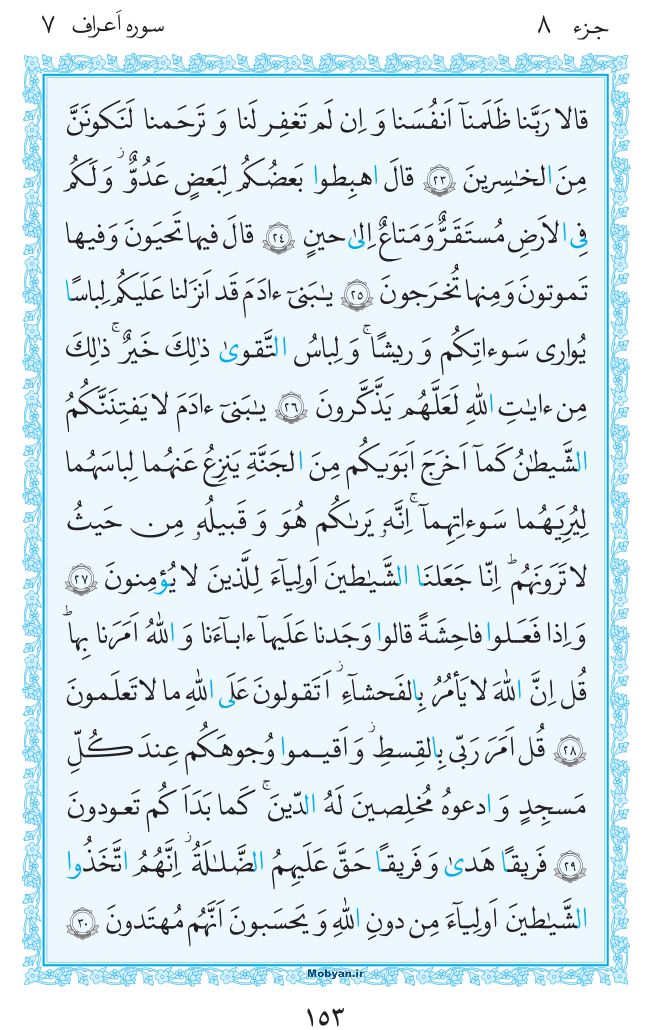 جزء ۸
سوره اَعراف ۷
قالا رَبَّنا ظَلَمنآ اَنفُسَنا وَ اِن لَم تَغفِر لَنا وَ تَرحَمنا لَنَكونَنَّ
مِنَ الخٰسِرينَ ﴿۲۳﴾ قالَ اهبِطوا بَعضُكُم لِبَعضٍ عَدُوٌّ ۖ وَ لَكُم
فِى الاَرضِ مُستَقَرٌّ وَ مَتاعٌ اِلىٰ حينٍ ﴿۲۴﴾ قالَ فيها تَحيَونَ وَ فيها
تَموتونَ وَ مِنها تُخرَجونَ ﴿۲۵﴾ يٰبَنىٓ ءادَمَ قَد اَنزَلنا عَلَيكُم لِباسًا
يُوارى سَوءاتِكُم وَ ريشًا ۚ وَ لِباسُ التَّقوىٰ ذٰلِكَ خَيرٌ ۚ ذٰلِكَ
مِن ءايٰتِ اللهِ لَعَلَّهُم يَذَّكَّرونَ ﴿۲۶﴾ يٰبَنىٓ ءادَمَ لا يَفتِنَنَّكُمُ
الشَّيطٰنُ كَمآ اَخرَجَ اَبَوَيكُم مِنَ الجَنَّةِ يَنزِعُ عَنهُما لِباسَهُما
لِيُرِيَهُما سَوءاتِهِمآ ۚ اِنَّهُۥ يَرىٰكُم هُوَ وَ قَبيلُهُۥ مِن حَيثُ
لا تَرَونَهُم ۗ اِنّا جَعَلنَا الشَّيٰطينَ اَولِيآءَ لِلَّذينَ لا يُؤمِنونَ ﴿۲۷﴾
وَ اِذا فَعَلوا فاحِشَةً قالوا وَجَدنا عَلَيهآ ءابآءَنا وَ اللهُ اَمَرَنا بِها ۗ
قُل اِنَّ اللهَ لا يَأمُرُ بِالفَحشآءِ ۖ اَتَقولونَ عَلَى اللهِ ما لا تَعلَمونَ
﴿۲۸﴾ قُل اَمَرَ رَبّى بِالقِسطِ ۖ وَ اَقيموا وُجوهَكُم عِندَ كُلِّ
مَسجِدٍ وَ ادعوهُ مُخلِصينَ لَهُ الدّينَ ۚ كَما بَدَاَ كُم تَعودونَ
﴿۲۹﴾ فَريقًا هَدىٰ وَ فَريقًا حَقَّ عَلَيهِمُ الضَّلٰلَةُ ۗ اِنَّهُمُ اتَّخَذُوا
الشَّيٰطينَ اَولِيآءَ مِن دونِ اللهِ وَ يَحسَبونَ اَنَّهُم مُهتَدونَ ﴿۳۰﴾
Mobyan.ir
۱۵۳